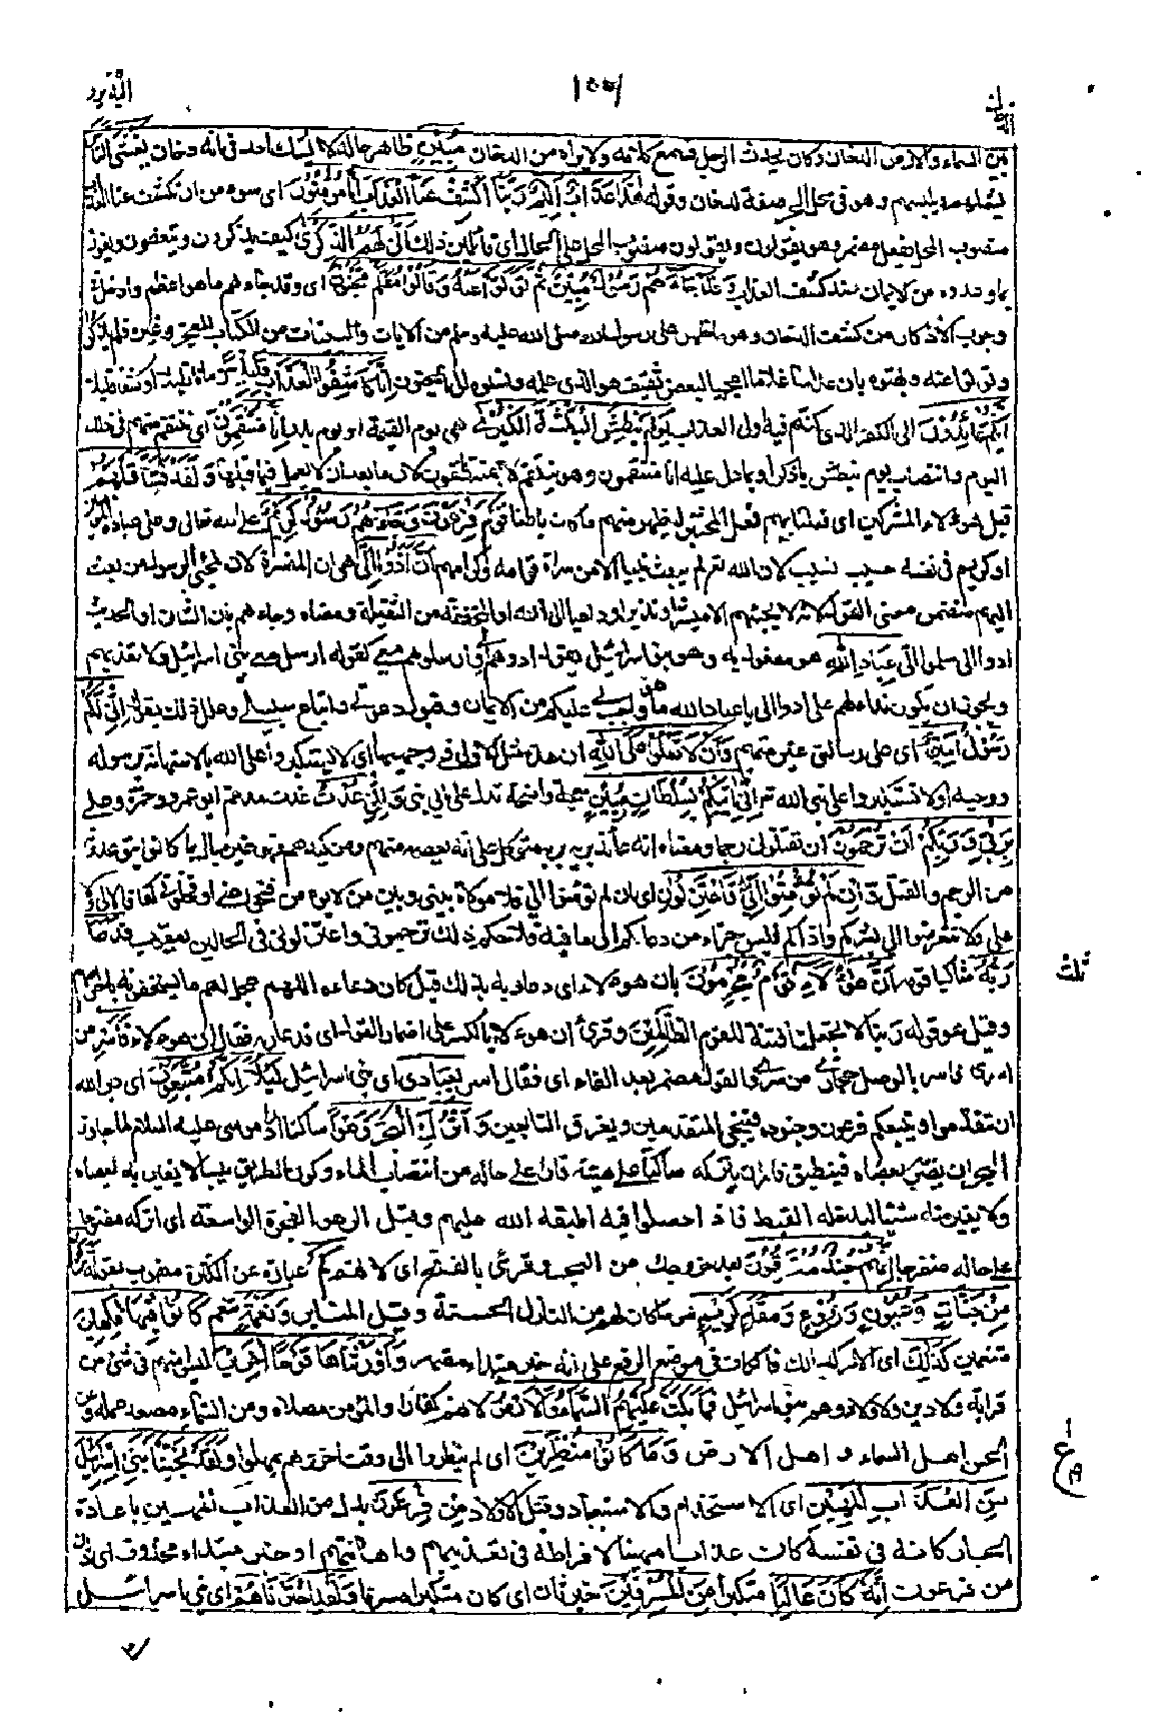 الیه یرد
١٥٥١
بين السماء والارض الدخان وكان يحدث الرجل فيسمع كلامه ولا يراه من الدخان مُبِيْنٍ ظاهر حاله لا يشك احد فى انه دخان يَغْشَى النَّاسَ
يشملهم ويلبسهم وهو فى محل الجر صفة لدخان وقوله هٰذَا عَذَابٌ اَلِيْمٌ رَبَّنَا اكْشِفْ عَنَّا الْعَذَابَ اِنَّا مُؤْمِنُوْنَ اى سنؤمن ان تكشف عنا العذاب
منصوب المحل بفعل مضمر وهو يقولون ويقولون منصوب المحل على الحال اى قائلين ذلك اَنّٰى لَهُمُ الذِّكْرٰى كيف يذكرون ويتعظون ويفون
بما وعدوه من الايمان عند كشف العذاب وَقَدْ جَاءَهُمْ رَسُوْلٌ مُبِيْنٌ ثُمَّ تَوَلَّوْا عَنْهُ وَقَالُوْا مُعَلَّمٌ مَجْنُوْنٌ اى وقد جاءهم ما هو اعظم وادخل فى
وجوب الاذكار من كشف الدخان وهو ما ظهر على رسول الله صلى الله عليه وسلم من الايات والبينات من الكتاب المعجز وغيره فلم يذكروا
وتولوا عنه وبهتوه بان عداسا غلاما اعجميا لبعض ثقيف هو الذى علمه ونسبوه الى الجنون اِنَّا كَاشِفُوا الْعَذَابِ قَلِيْلًا زمانا قليلا او كشفا قليلا
اِنَّكُمْ عَائِدُوْنَ الى الكفر الذى كنتم فيه او الى العذاب يَوْمَ نَبْطِشُ الْبَطْشَةَ الْكُبْرٰى هى يوم القيمة او يوم بدر اِنَّا مُنْتَقِمُوْنَ اى ننتقم منهم فى ذلك
اليوم وانتصاب يوم نبطش باذكر او بما دل عليه انا منتقمون وهو ننتقم لا بمنتقمون لان ما بعد ان لا يعمل فيما قبلها وَلَقَدْ فَتَنَّا قَبْلَهُمْ
قبل هؤلاء المشركين اى فعلنا بهم فعل المختبر ليظهر منهم ما كان باطنا قَوْمَ فِرْعَوْنَ وَجَاءَهُمْ رَسُوْلٌ كَرِيْمٌ على الله تعالى وعلى عباده المؤمنين
او كريم فى نفسه حسيب نسيب لان الله تعم لم يبعث نبيا الا من سراة قومه وكرامهم اَنْ اَدُّوْا اِلَىَّ هى ان المفسرة لان مجئ الرسول من بعث
اليهم متضمن معنى القول لانه لا يجيئهم الا مبشرا ونذيرا وداعيا الى الله او المخففة من الثقيلة ومعناه وجاءهم بان الشان او الحديث
ادوا الى سلموا الى عِبَادَ اللّٰهِ هو مفعول به وهم بنو اسرائيل يقول ادوهم الى وارسلوهم معى كقوله ارسل معى بنى اسرائيل ولا تعذبهم
ويجوز ان يكون نداء لهم على ادوا الى يا عباد الله ما هو واجب لى عليكم من الايمان وقبول دعوتى واتباع سبيلى وعلل ذلك بقوله اِنِّىْ لَكُمْ
رَسُوْلٌ اَمِيْنٌ اى على رسالتى غير متهم وَاَنْ لَا تَعْلُوْا عَلَى اللّٰهِ ان هذه مثل الاولى فى وجهيها اى لا تستكبروا على الله بالاستهانة برسوله
ووحيه او لا تستكبروا على نبى الله تم اِنِّىْ اٰتِيْكُمْ بِسُلْطَانٍ مُبِيْنٍ بحجة واضحة تدل على انى نبى وَاِنِّىْ عُذْتُ عدت مدغم ابو عمرو وحمزة وعلى
بِرَبِّىْ وَرَبِّكُمْ اَنْ تَرْجُمُوْنِ ان تقتلون رجما ومعناه انه عائذ بربه متكل على انه يعصمه منهم ومن كيدهم فهو غير مبال بما كانوا يتوعدونه
من الرجم والقتل وَاِنْ لَمْ تُؤْمِنُوْا لِىْ فَاعْتَزِلُوْنِ اى ان لم تؤمنوا لى فلا موالاة بينى وبين من لا يؤمن فتنحوا عنى او فخلونى كفافا لا لى ولا
على ولا تتعرضوا لى بشركم واذاكم فليس جزاء من دعاكم الى ما فيه فلاحكم ذلك ترجمونى واعتزلونى فى الحالين يعقوب فَدَعَا
رَبَّهٗ شاكيا قومه اَنَّ هٰؤُلَاءِ قَوْمٌ مُجْرِمُوْنَ بان هؤلاء اى دعا ربه بذلك قيل كان دعاءه اللهم عجل لهم ما يستحقونه باجرامهم
ثلث
وقيل هو قوله ربنا لا تجعلنا فتنة للقوم الظٰلمين وقرئ ان هؤلاء بالكسر على اضمار القول اى فدعا ربه فقال ان هؤلاء فَاَسْرِ من
اسرى فاسر بالوصل حجازى من سرى والقول مضمر بعد الفاء اى فقال اسر بِعِبَادِىْ اى بنى اسرائيل لَيْلًا اِنَّكُمْ مُتَّبَعُوْنَ اى دبر الله
ان تتقدموا ويتبعكم فرعون وجنوده فينجى المتقدمين ويغرق التابعين وَاتْرُكِ الْبَحْرَ رَهْوًا ساكنا اراد موسى عليه السلام لما جاوز
البحر ان يضربه بعصاه فينطبق فامر ان يتركه ساكنا على هيئته قارا على حاله من انتصاب الماء وكون الطريق يبسا لا يضربه بعصاه
ولا يغير منه شيئا ليدخله القبط فاذا حصلوا فيه اطبقه الله عليهم وقيل الرهو الفجوة الواسعة اى اتركه مفتوحا
على حاله منفرجا اِنَّهُمْ جُنْدٌ مُغْرَقُوْنَ بعد خروجك من البحر وقرئ بالفتح اى لانهم كَمْ عبارة عن الكثرة منصوب بقوله تَرَكُوْا
مِنْ جَنّٰتٍ وَعُيُوْنٍ وَزُرُوْعٍ وَمَقَامٍ كَرِيْمٍ هو ما كان لهم من المنازل الحسنة وقيل المنابر وَنَعْمَةٍ تنعم كَانُوْا فِيْهَا فٰكِهِيْنَ
متنعمين كَذٰلِكَ اى الامر كذلك فالكاف فى موضع الرفع على انه خبر مبتداء مضمر وَاَوْرَثْنٰهَا قَوْمًا اٰخَرِيْنَ ليسوا منهم فى شئ من
قرابة ولا دين ولا ولاء وهم بنو اسرائيل فَمَا بَكَتْ عَلَيْهِمُ السَّمَاءُ وَالْاَرْضُ لانهم كفار والمؤمن مصلاه ومن السماء مصعد عمله وعن
الحسن اهل السماء و اهل الارض وَمَا كَانُوْا مُنْظَرِيْنَ اى لم ينظروا الى وقت اخر ولم يمهلوا وَلَقَدْ نَجَّيْنَا بَنِىْ اِسْرَائِيْلَ
ع
مِنَ الْعَذَابِ الْمُهِيْنِ اى الاستخدام والاستعباد وقتل الاولاد مِنْ فِرْعَوْنَ بدل من العذاب المهين باعادة
الجار كانه فى نفسه كان عذابا مهينا لافراطه فى تعذيبهم واهانتهم او خبر مبتداء محذوف اى ذلك
من فرعون اِنَّهٗ كَانَ عَالِيًا متكبرا مِنَ الْمُسْرِفِيْنَ خبر ثان اى كان متكبرا مسرفا وَلَقَدِ اخْتَرْنٰهُمْ اى بنى اسرائيل